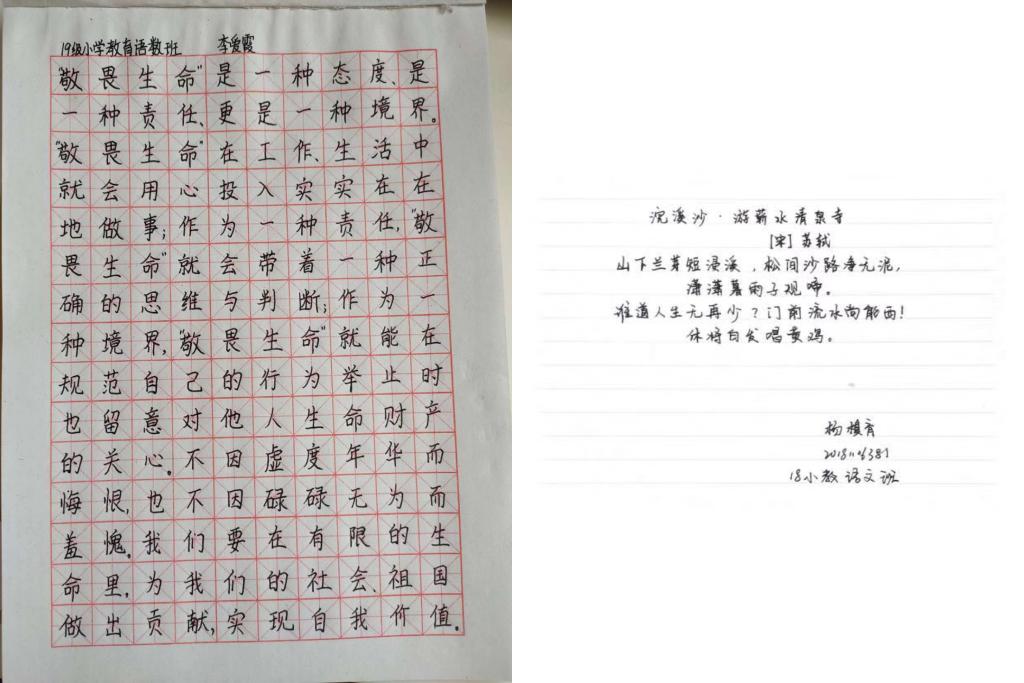 19级小学教育语数班 李爱霞
“敬畏生命”是一种态度、是
一种责任、更是一种境界。
“敬畏生命”在工作、生活中
就会用心投入实实在在
地做事；作为一种责任，“敬
畏生命”就会带着一种正
确的思维与判断；作为一
种境界，“敬畏生命”就能在
规范自己的行为举止时
也留意对他人生命财产
的关心。不因虚度年华而
悔恨，也不因碌碌无为而
羞愧。我们要在有限的生
命里，为我们的社会、祖国
做出贡献，实现自我价值。
浣溪沙·游蕲水清泉寺
[宋]苏轼
山下兰芽短浸溪，松间沙路净无泥，
潇潇暮雨子规啼。
谁道人生无再少？门前流水尚能西！
休将白发唱黄鸡。
18小教语文班